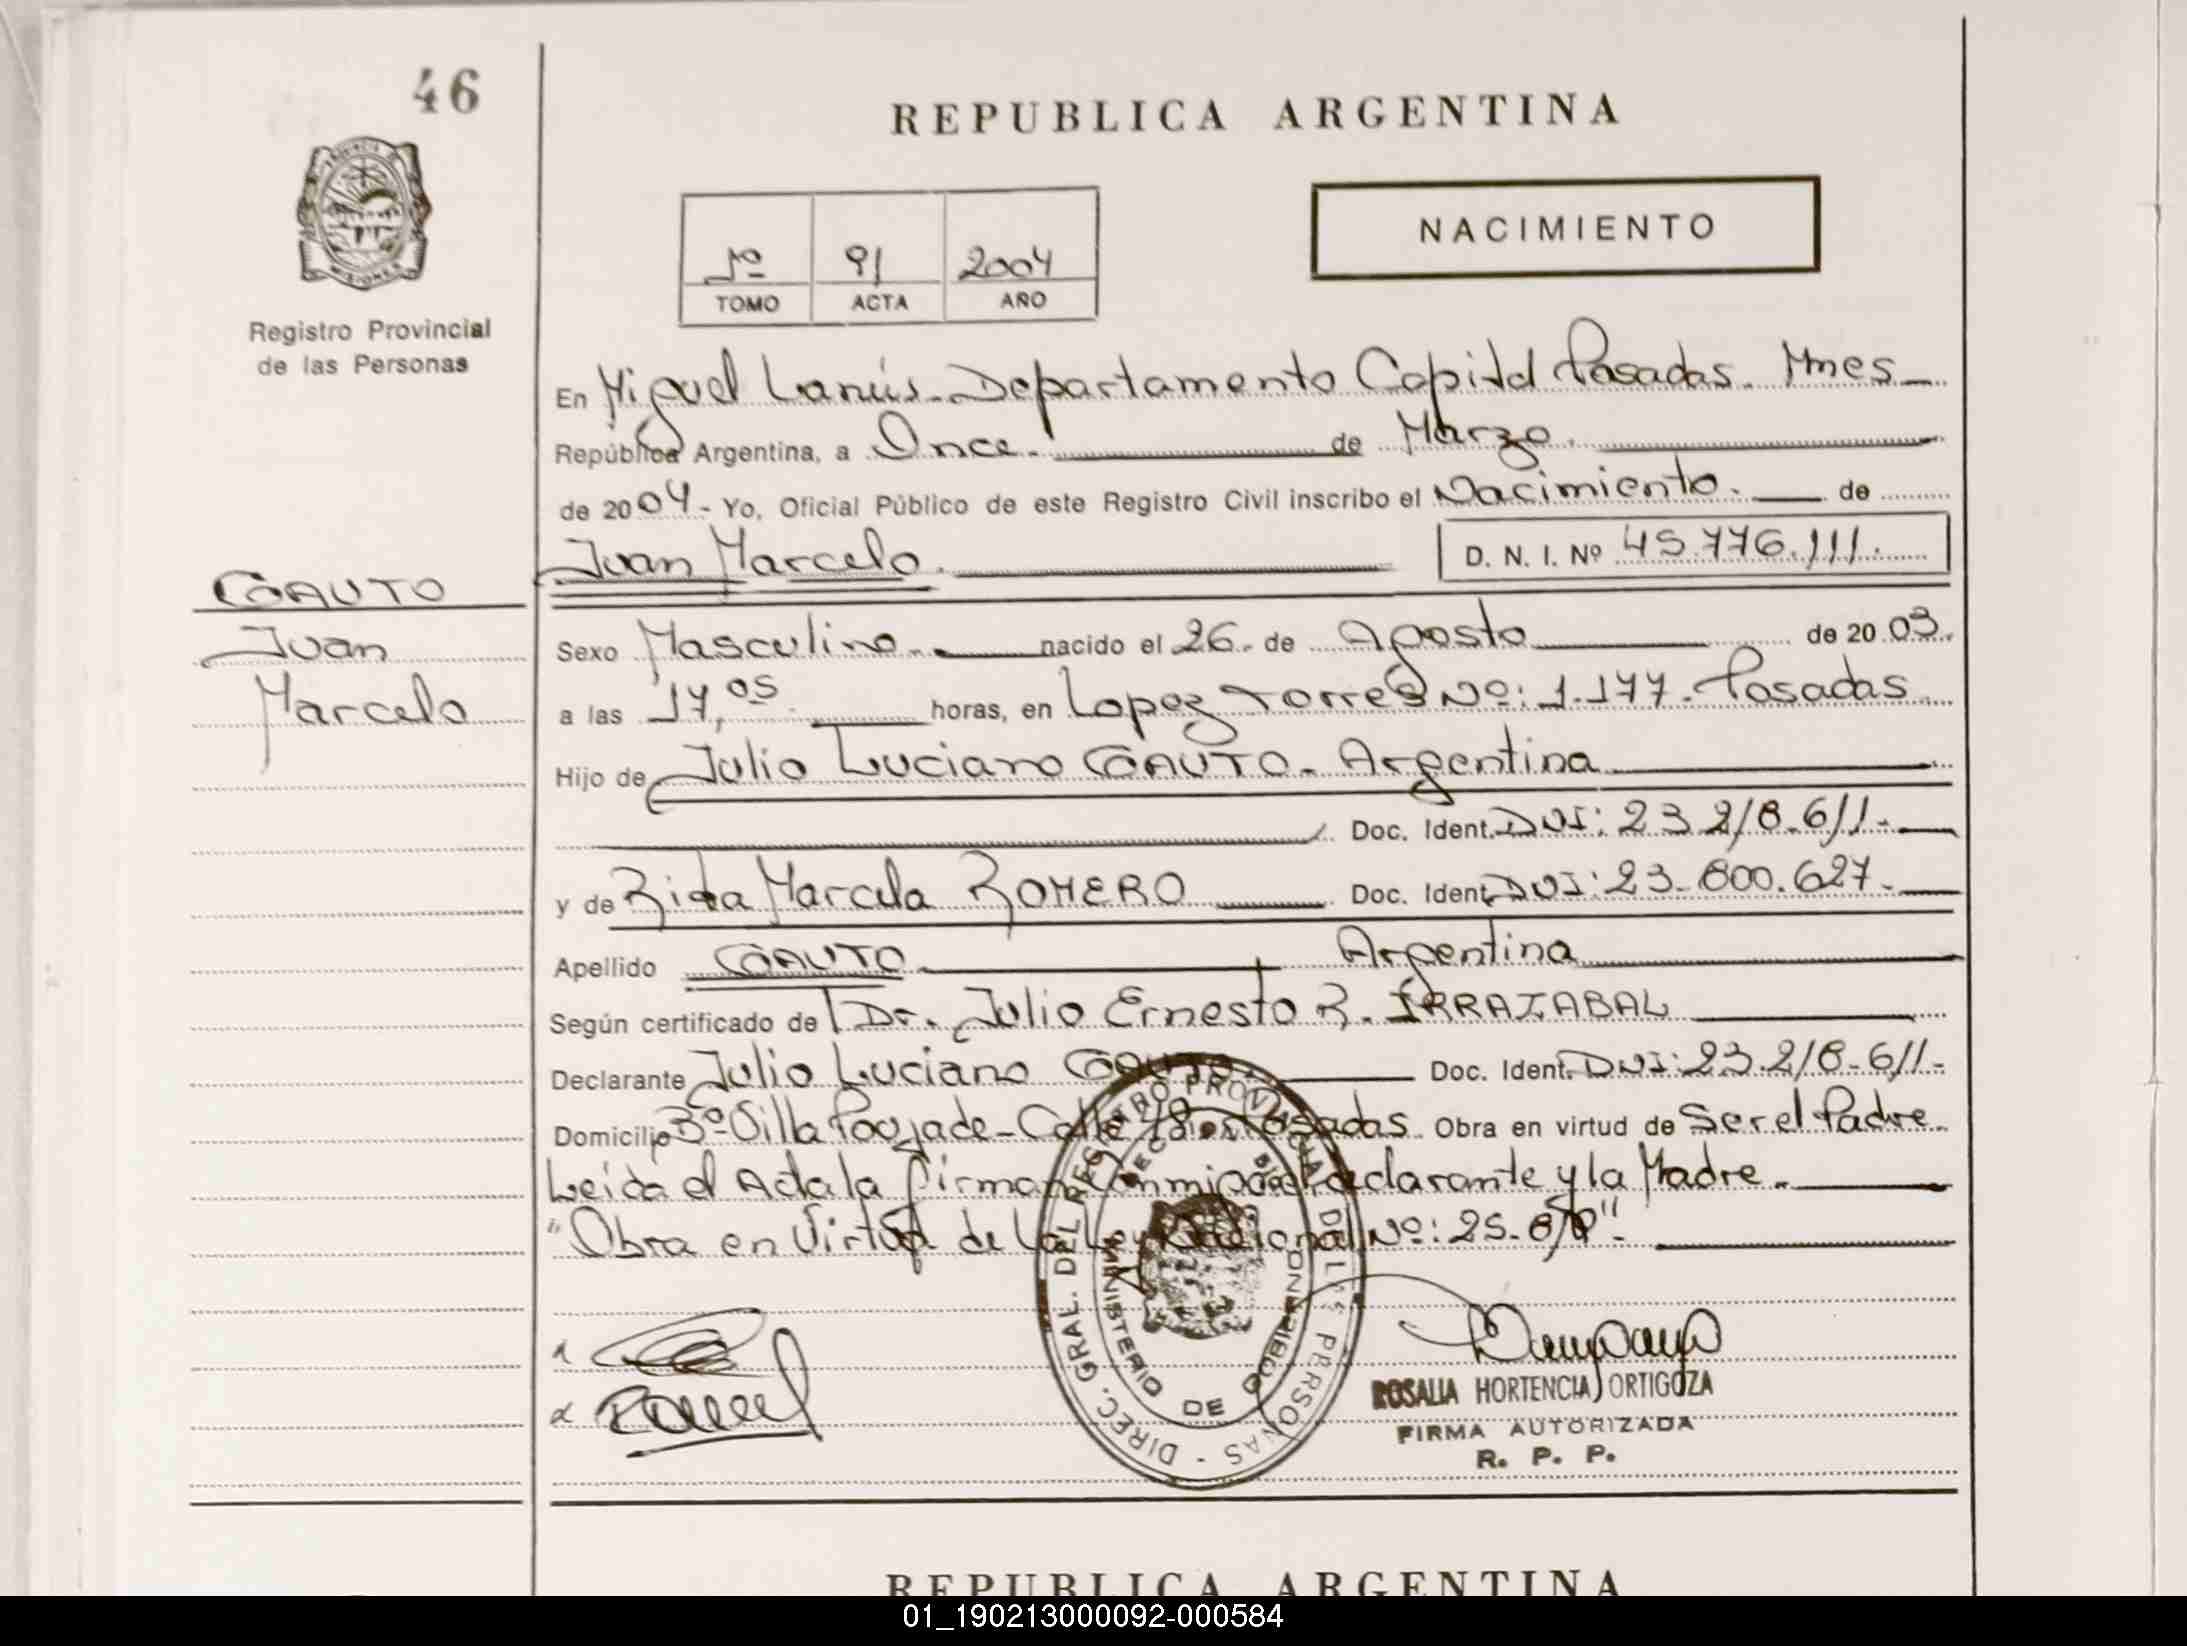 46
REPUBLICA ARGENTINA
PROVINCIA DE
MISIONES
Registro Provincial
de las Personas
1º 91 2004
TOMO ACTA AÑO
NACIMIENTO
En Miguel Lanús - Departamento Capital Posadas. Mnes
República Argentina, a Once. de Marzo.
de 2004 - Yo, Oficial Público de este Registro Civil inscribo el Nacimiento. de
Juan Marcelo. D. N. I. Nº 45.776.111.
COAUTO
Juan
Marcelo
Sexo Masculino. nacido el 26. de Agosto de 2003.
a las 17,05 horas, en Lopez Torres Nº: 1.177. Posadas
Hijo de Julio Luciano COAUTO. Argentina
Doc. Ident. DNI: 23.218.611.
y de Rita Marcela ROMERO Doc. Ident. DNI: 23.800.627.
Apellido COAUTO Argentina
Según certificado de Dr. Julio Ernesto R. IRRAZABAL
Declarante Julio Luciano COAUTO. Doc. Ident. DNI: 23.218.611.
Domicilio Bº Villa Poujade - Calle Posadas. Obra en virtud de Ser el Padre.
Leida el Acta la firman conmigo el declarante y la Madre.
"Obra en Virtud de La Ley Nacional Nº: 25.819".
DIREC. GRAL. DEL REGISTRO PROVINCIAL DE LAS PERSONAS
MINISTERIO DE GOBIERNO
ROSALIA HORTENCIA ORTIGOZA
FIRMA AUTORIZADA
R. P. P.
REPUBLICA ARGENTINA
01_190213000092-000584